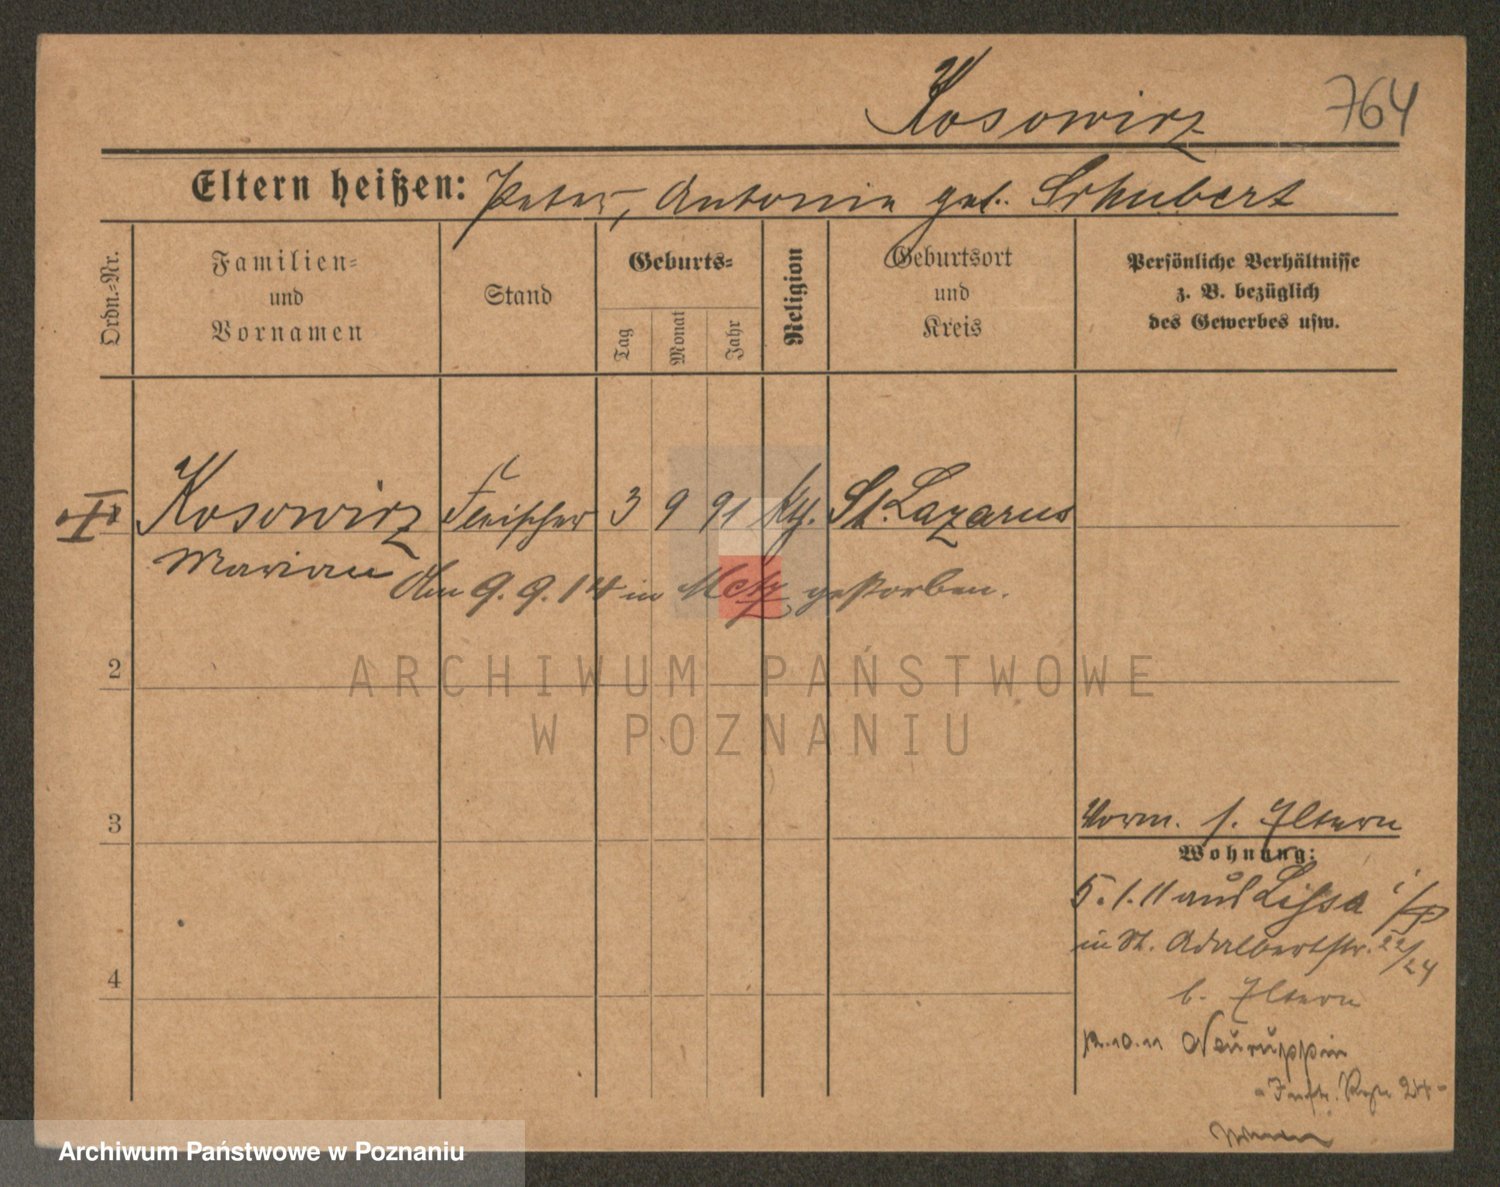 Kosowicz 764
Eltern heißen: Peter, Antonie geb. Schubert
Ordn.-Nr.
Familien-
und
Vornamen
Stand
Geburts-
Tag
Monat
Jahr
Religion
Geburtsort
und
Kreis
Persönliche Verhältnisse
z. B. bezüglich
des Gewerbes usw.
Kosowicz Fleischer 3 9 91 kth. St. Lazarus
Marian
Am 9. 9. 14 in Metz gestorben.
2
3
4
Vorm. s. Eltern
Wohnung:
5. 1. 11 aus Lissa i/P
in St. Adalbertstr. 22/24
b. Eltern
12.10.11 Neuruppin
- Inftr. Rgt. 24 -
ARCHIWUM PAŃSTWOWE
W POZNANIU
Archiwum Państwowe w Poznaniu